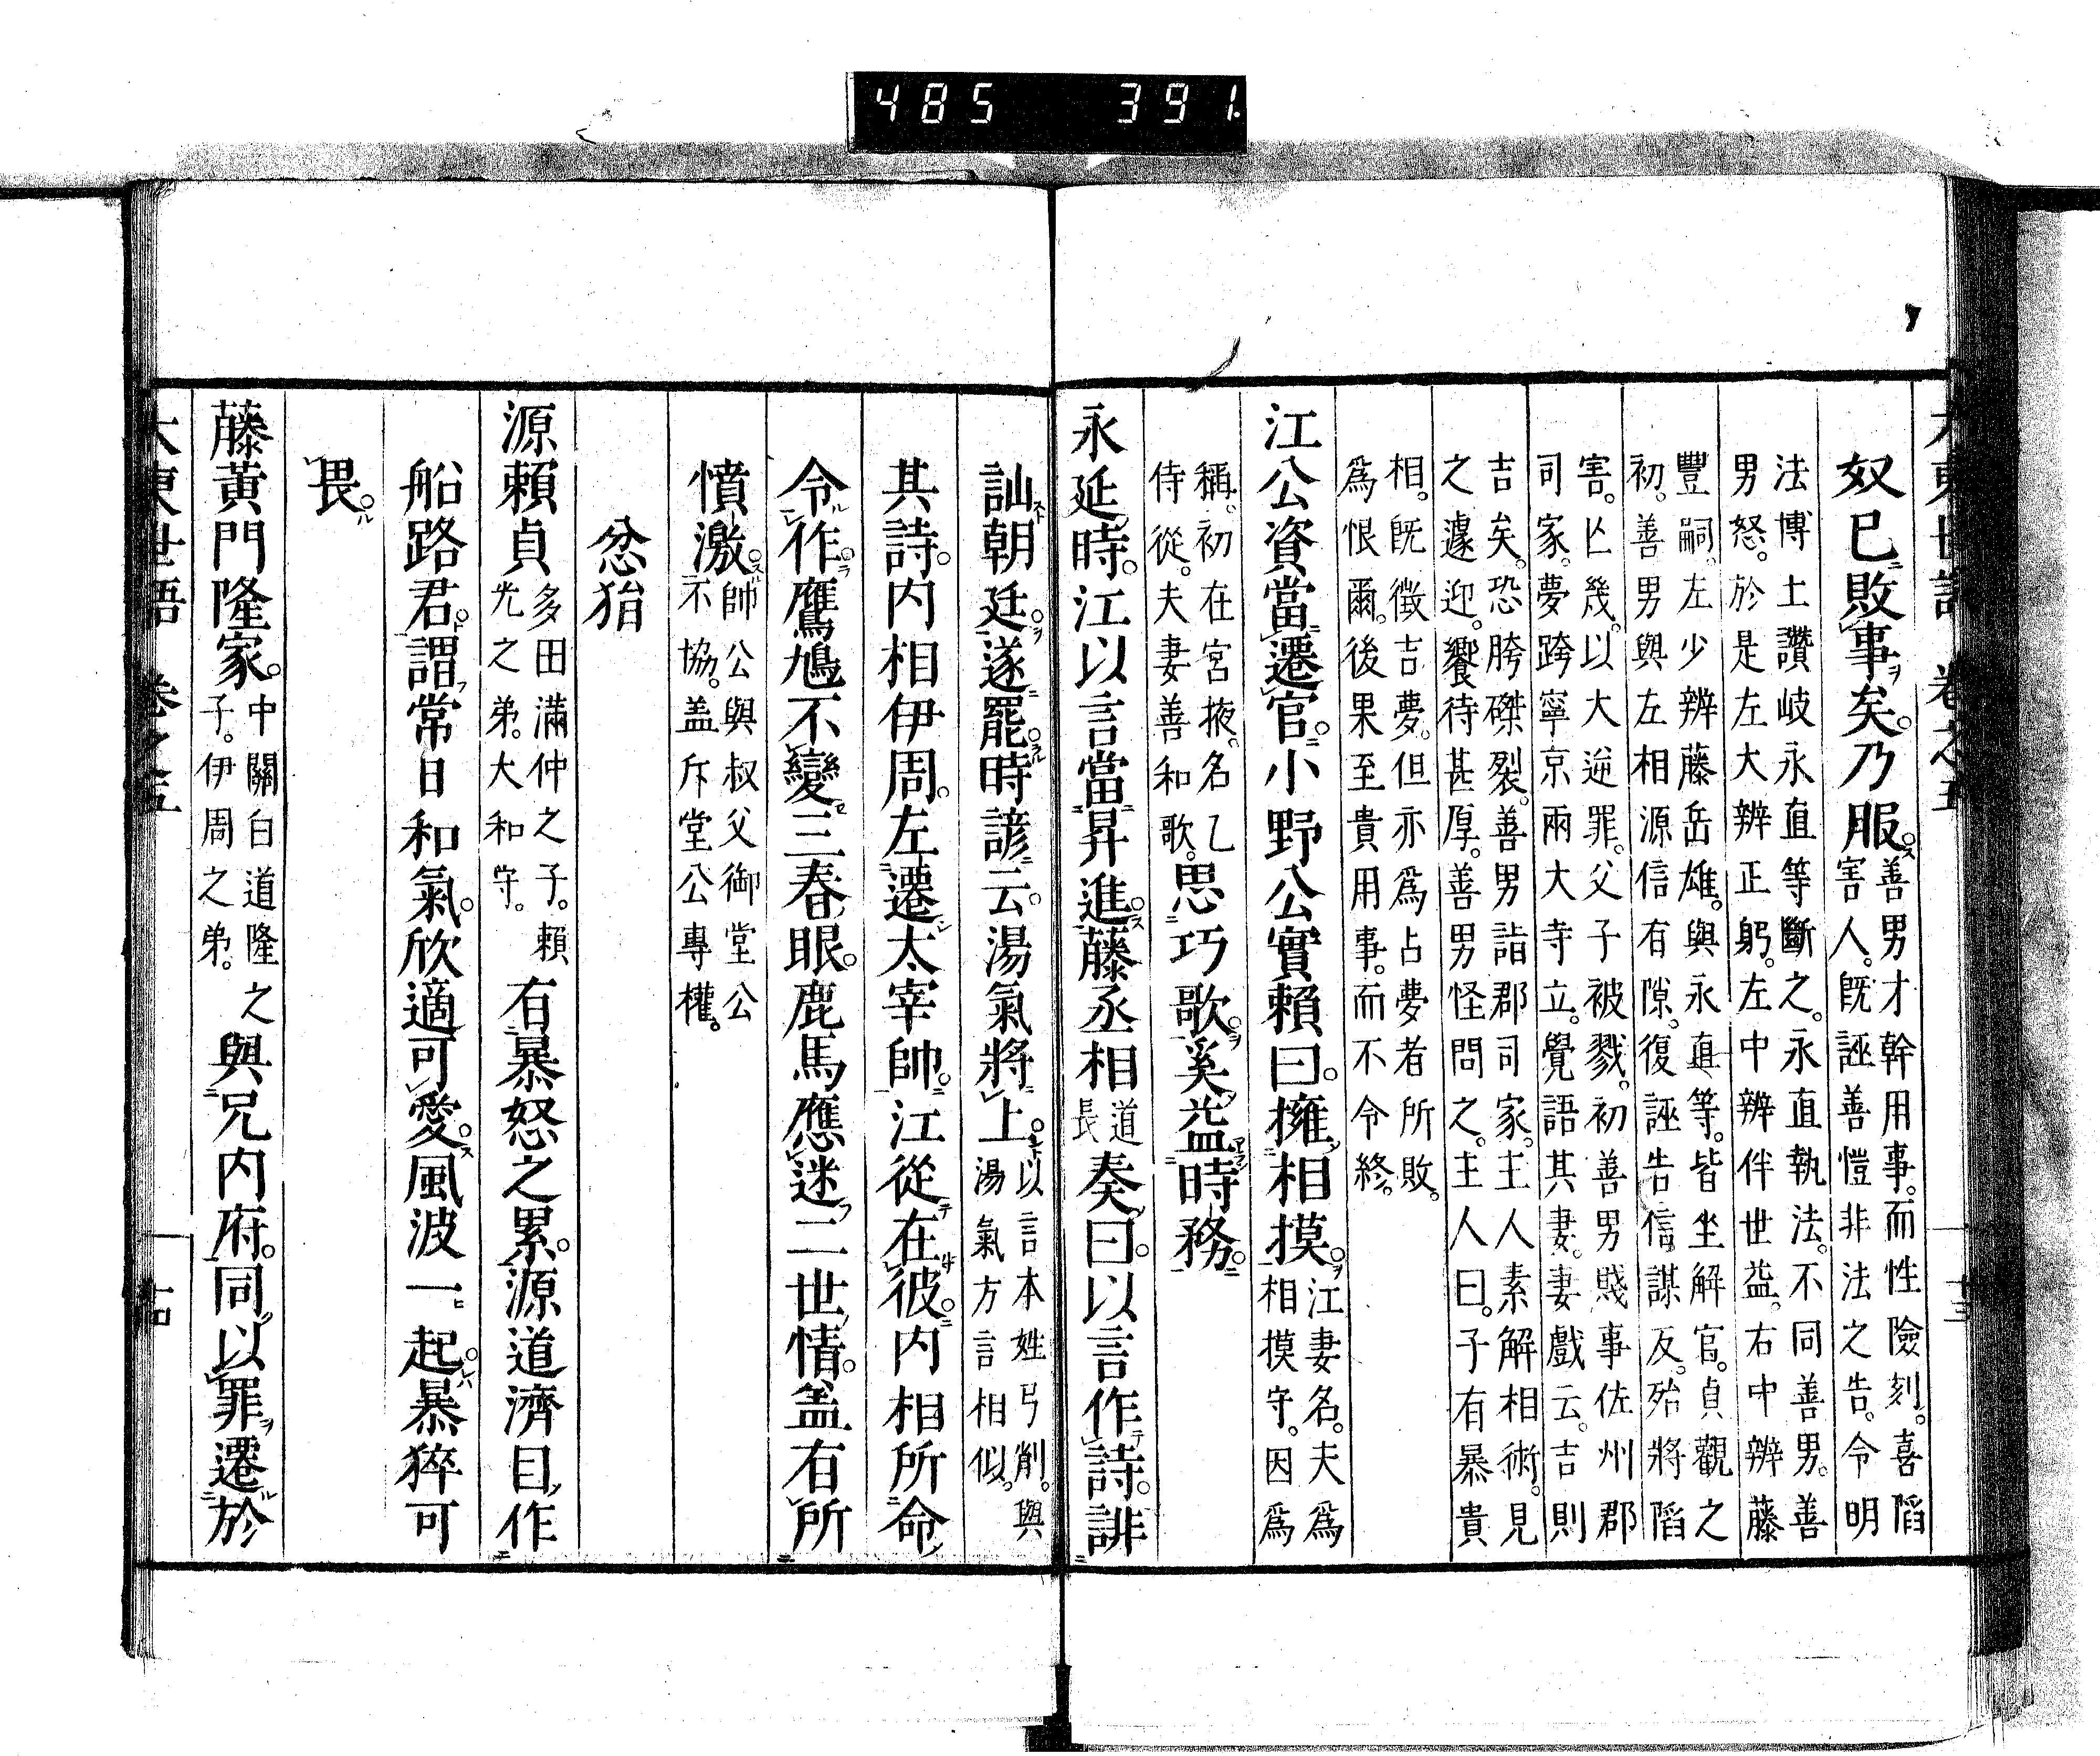 485 391
大東世語 卷之五 十三
奴已敗事矣。乃服。善男才幹用事。而性險刻。喜陷
害人。旣誣善愷非法之告。令明
法博士讚岐永直等斷之。永直執法。不同善男。善
男怒。於是左大辨正躬。左中辨伴世益。右中辨藤
豐嗣。左少辨藤岳雄。與永直等。皆坐解官。貞觀之
初。善男與左相源信有隙。復誣告信謀反。殆將陷
害。亡幾。以大逆罪。父子被戮。初善男賤事佐州郡
司家。夢跨寧京兩大寺立。覺語其妻。妻戲云。吉則
吉矣。恐胯磔裂。善男詣郡司家。主人素解相術。見
之遽迎。饗待甚厚。善男怪問之。主人曰。子有暴貴
相。旣徵吉夢。但亦爲占夢者所敗。
爲恨爾。後果至貴用事。而不令終。
江公資當遷官。小野公實賴曰。擁相摸。江妻名。夫爲
相摸守。因爲
稱。初在宮掖。名乙
侍從。夫妻善和歌。思巧歌。奚益時務。
永延時。江以言當昇進。藤丞相道
長奏曰。以言作詩。誹
訕朝廷。遂罷。時諺云。湯氣將上。以言本姓弓削。與
湯氣方言相似。
其詩。內相伊周。左遷太宰帥。江從在彼。內相所命
令作。鷹鳩不變三春眼。鹿馬應迷二世情。盖有所
憤激。帥公與叔父御堂公
不協。盖斥堂公專權。
忿狷
源賴貞多田滿仲之子。賴
光之弟。大和守。有暴怒之累。源道濟目作
船路君。謂常日和氣。欣適可愛。風波一起。暴猝可
畏。
藤黃門隆家。中關白道隆之
子。伊周之弟。與兄內府。同以罪遷於
大東世語 卷之五 十四